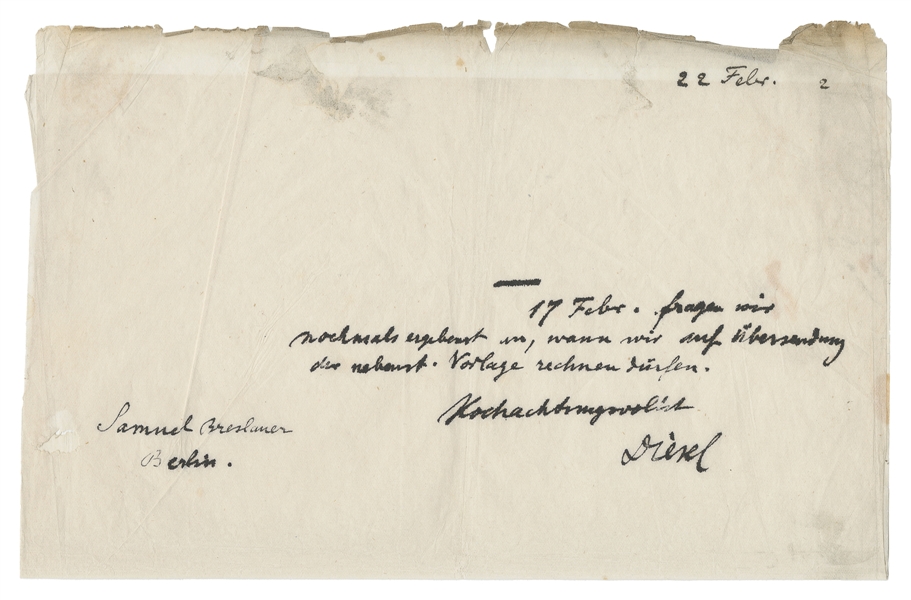 22 Febr. 2
17 Febr. fragen wir
nochmals ergebenst an, wann wir auf Übersendung
der nebenst. Vorlage rechnen dürfen.
Hochachtungsvollst
Diesel
Samuel Breslauer
Berlin.